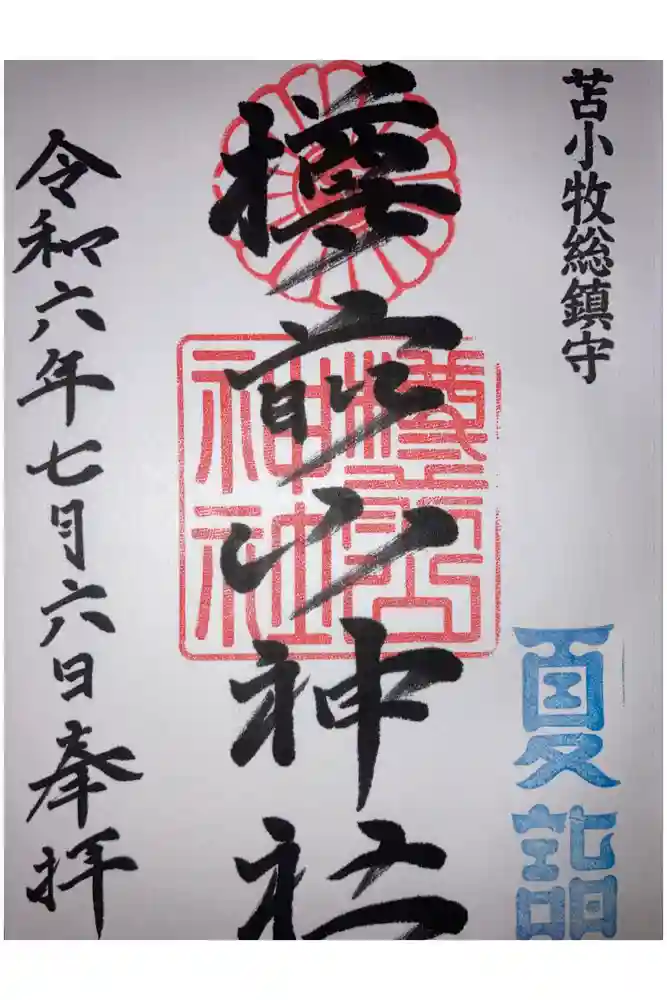 苫小牧総鎮守
夏詣
樽前山神社
樽前山神社
令和六年七月六日奉拝